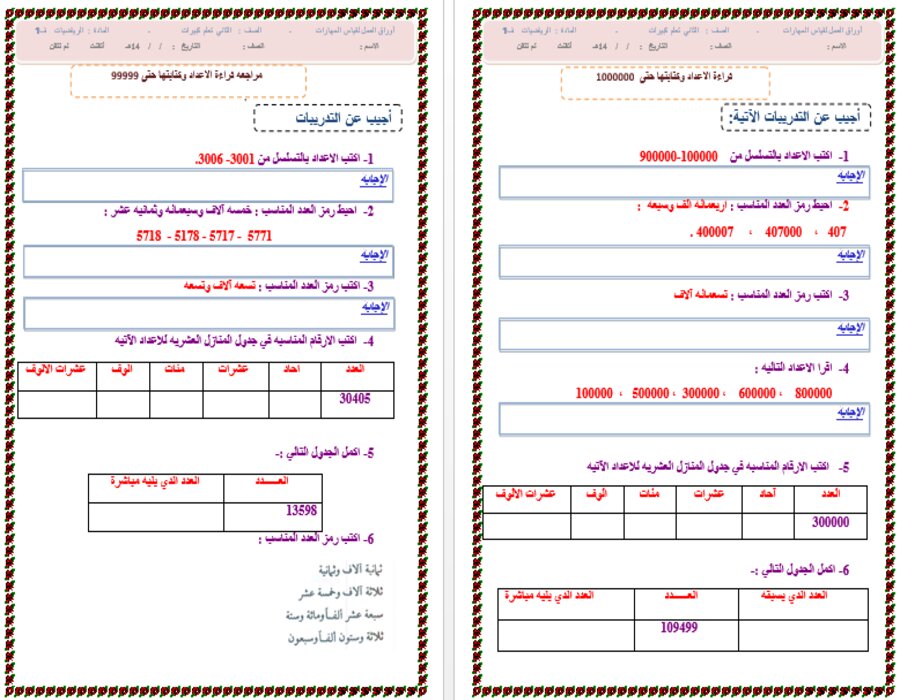 أوراق العمل لقياس المهارات - الصف : الثاني تعلم كبيرات - المادة : الرياضيات ف1
الاسم : الصف : التاريخ : / / 14هـ أتقنت لم تتقن
قراءة الاعداد وكتابتها حتى 1000000
أجيب عن التدريبات الآتية:
1- اكتب الاعداد بالتسلسل من 100000-900000
الإجابه
2- احيط رمز العدد المناسب : اربعمائه الف وسبعه :
407 ، 407000 ، 400007 .
الإجابه
3- اكتب رمز العدد المناسب : تسعمائه آلاف
الإجابه
4- اقرا الاعداد التاليه :
800000 ، 600000 ، 300000 ، 500000 ، 100000
الإجابه
5- اكتب الارقام المناسبه في جدول المنازل العشريه للاعداد الآتيه
العدد آحاد عشرات مئات الوف عشرات الالوف
300000
6- اكمل الجدول التالي :-
العدد الذي يسبقه العـــدد العدد الذي يليه مباشرة
109499
أوراق العمل لقياس المهارات - الصف : الثاني تعلم كبيرات - المادة : الرياضيات ف1
الاسم : الصف : التاريخ : / / 14هـ أتقنت لم تتقن
مراجعه قراءة الاعداد وكتابتها حتى 99999
أجيب عن التدريبات
1- اكتب الاعداد بالتسلسل من 3001- 3006.
الإجابه
2- احيط رمز العدد المناسب : خمسه آلاف وسبعمائه وثمانيه عشر :
5771 - 5717 - 5178 - 5718
الإجابه
3- اكتب رمز العدد المناسب : تسعه آلاف وتسعه
الإجابه
4- اكتب الارقام المناسبه في جدول المنازل العشريه للاعداد الآتيه
العدد احاد عشرات مئات الوف عشرات الالوف
30405
5- اكمل الجدول التالي :-
العـــدد العدد الذي يليه مباشرة
13598
6- اكتب رمز العدد المناسب :
ثمانية آلاف وثمانية
ثلاثة آلاف وخمسة عشر
سبعة عشر ألفاً ومائة وستة
ثلاثة وستون ألفاً وسبعون